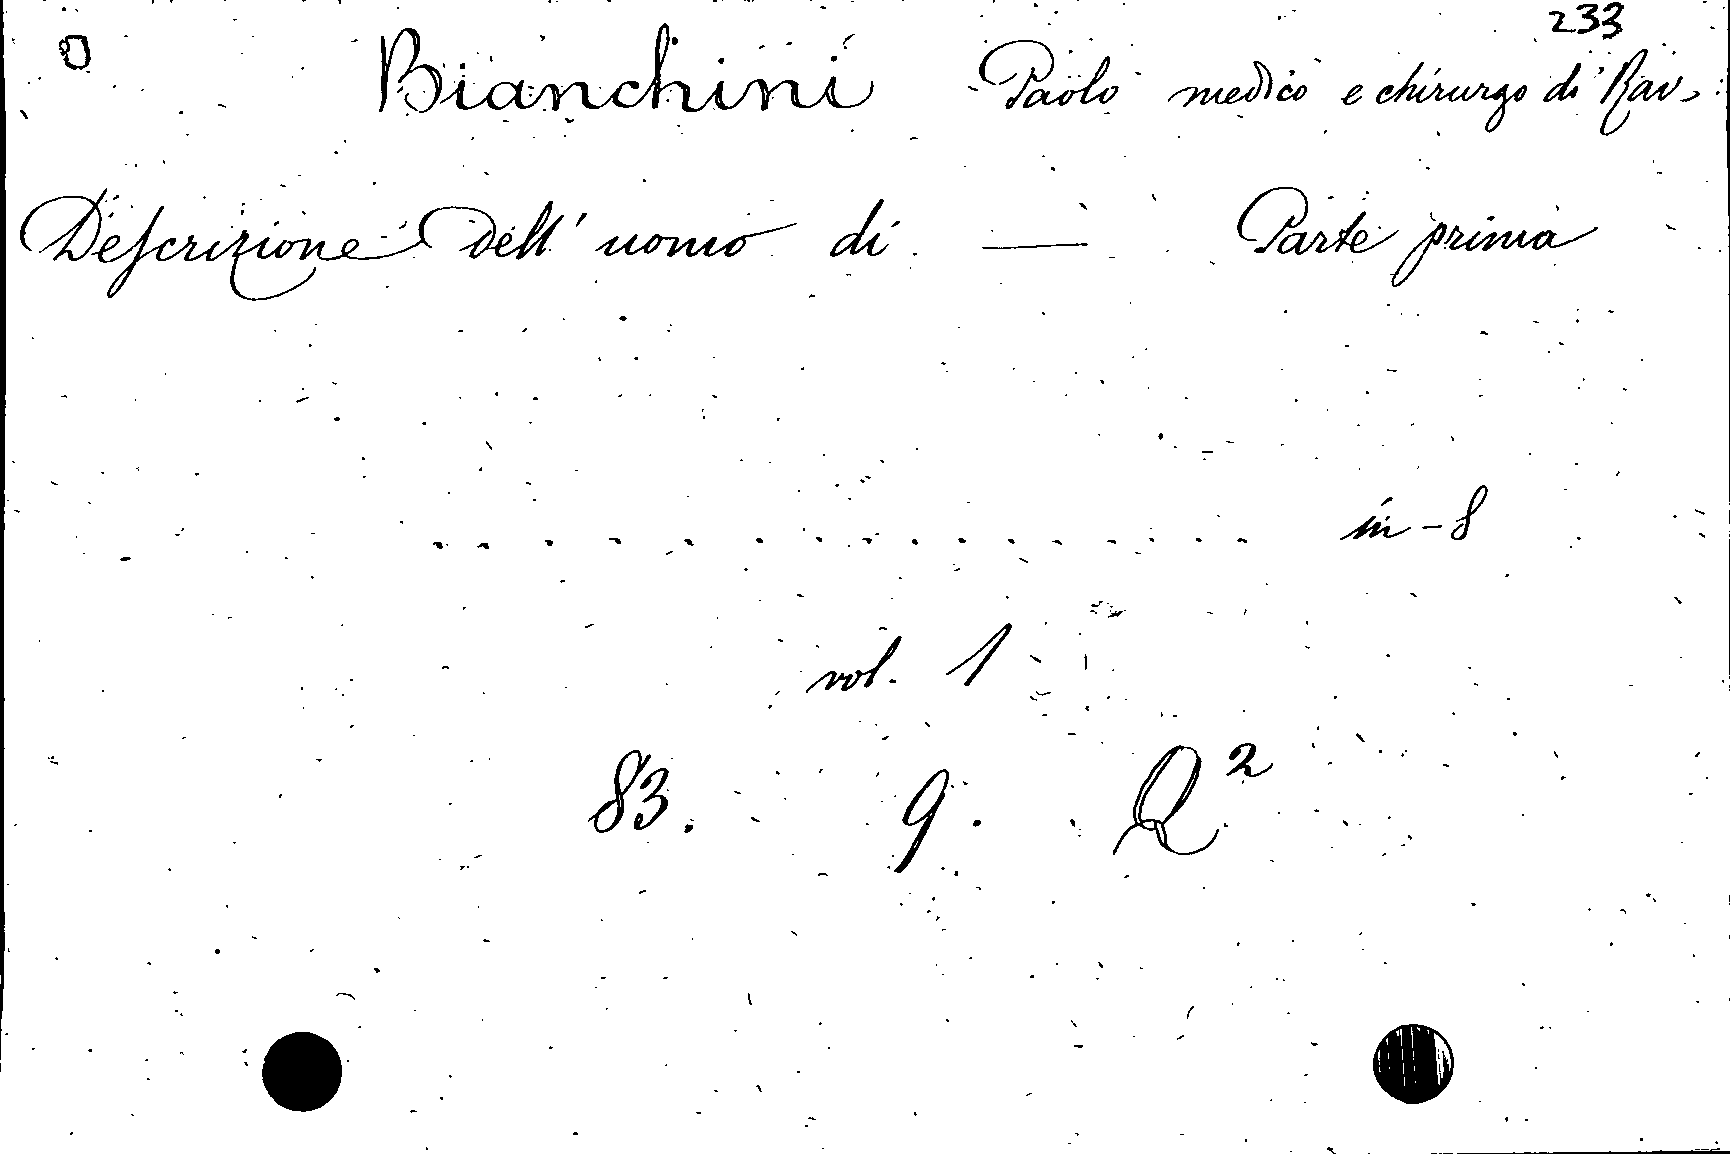 233
Bianchini Paolo medico e chirurgo di Rav.
Descrizione dell' uomo di — Parte prima
. . . . . . . . . . . . . . . . in-8
vol. 1
83. 9. Q²